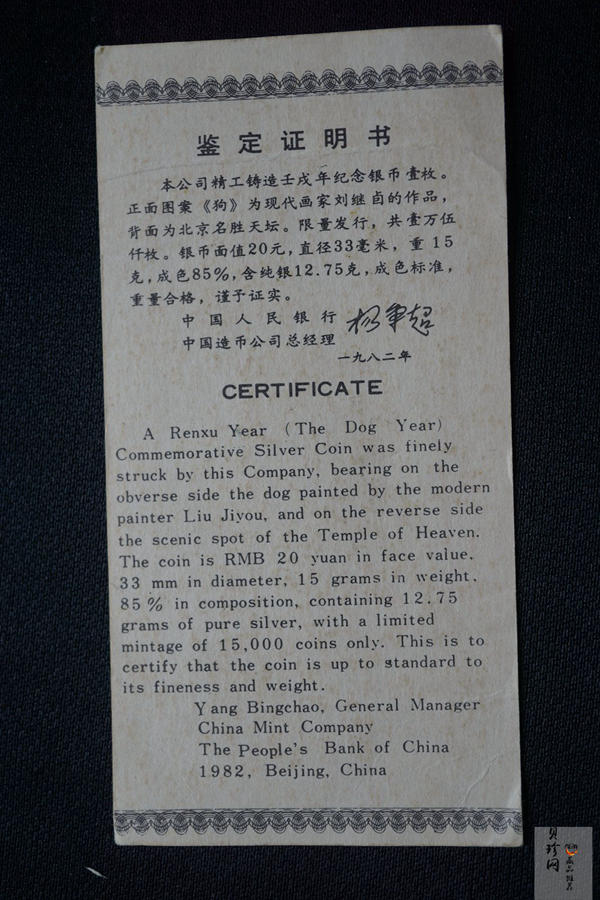 鉴定证明书
本公司精工铸造壬戌年纪念银币壹枚。
正面图案《狗》为现代画家刘继卣的作品，
背面为北京名胜天坛。限量发行，共壹万伍
仟枚。银币面值20元，直径33毫米，重15
克，成色85%，含纯银12.75克，成色标准，
重量合格，谨予证实。
中国人民银行
中国造币公司总经理 杨秉超
一九八二年
CERTIFICATE
A Renxu Year (The Dog Year)
Commemorative Silver Coin was finely
struck by this Company, bearing on the
obverse side the dog painted by the modern
painter Liu Jiyou, and on the reverse side
the scenic spot of the Temple of Heaven.
The coin is RMB 20 yuan in face value.
33 mm in diameter, 15 grams in weight.
85% in composition, containing 12.75
grams of pure silver, with a limited
mintage of 15,000 coins only. This is to
certify that the coin is up to standard to
its fineness and weight.
Yang Bingchao, General Manager
China Mint Company
The People's Bank of China
1982, Beijing, China
贝珍网
藏品推荐